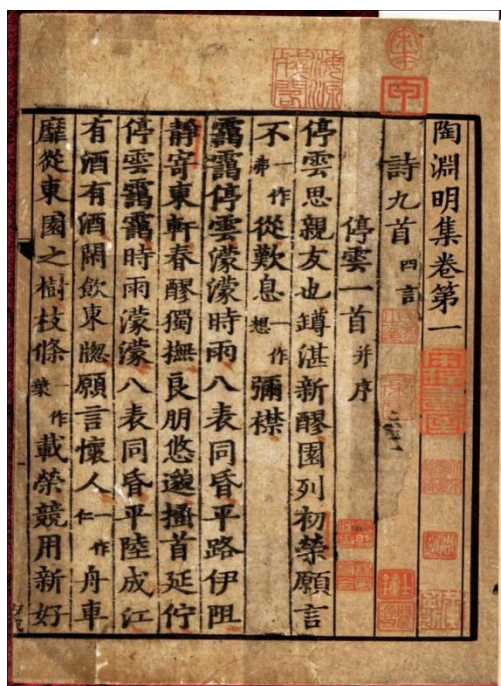 陶淵明集卷第一
詩九首四言
停雲一首并序
停雲思親友也罇湛新醪園列初榮願言
不一作弗從歎息一作想彌襟
靄靄停雲濛濛時雨八表同昏平路伊阻
靜寄東軒春醪獨撫良朋悠邈搔首延佇
停雲靄靄時雨濛濛八表同昏平陸成江
有酒有酒閑飲東牎願言懷人一作仁舟車
靡從東園之樹枝條一作葉載榮競用新好